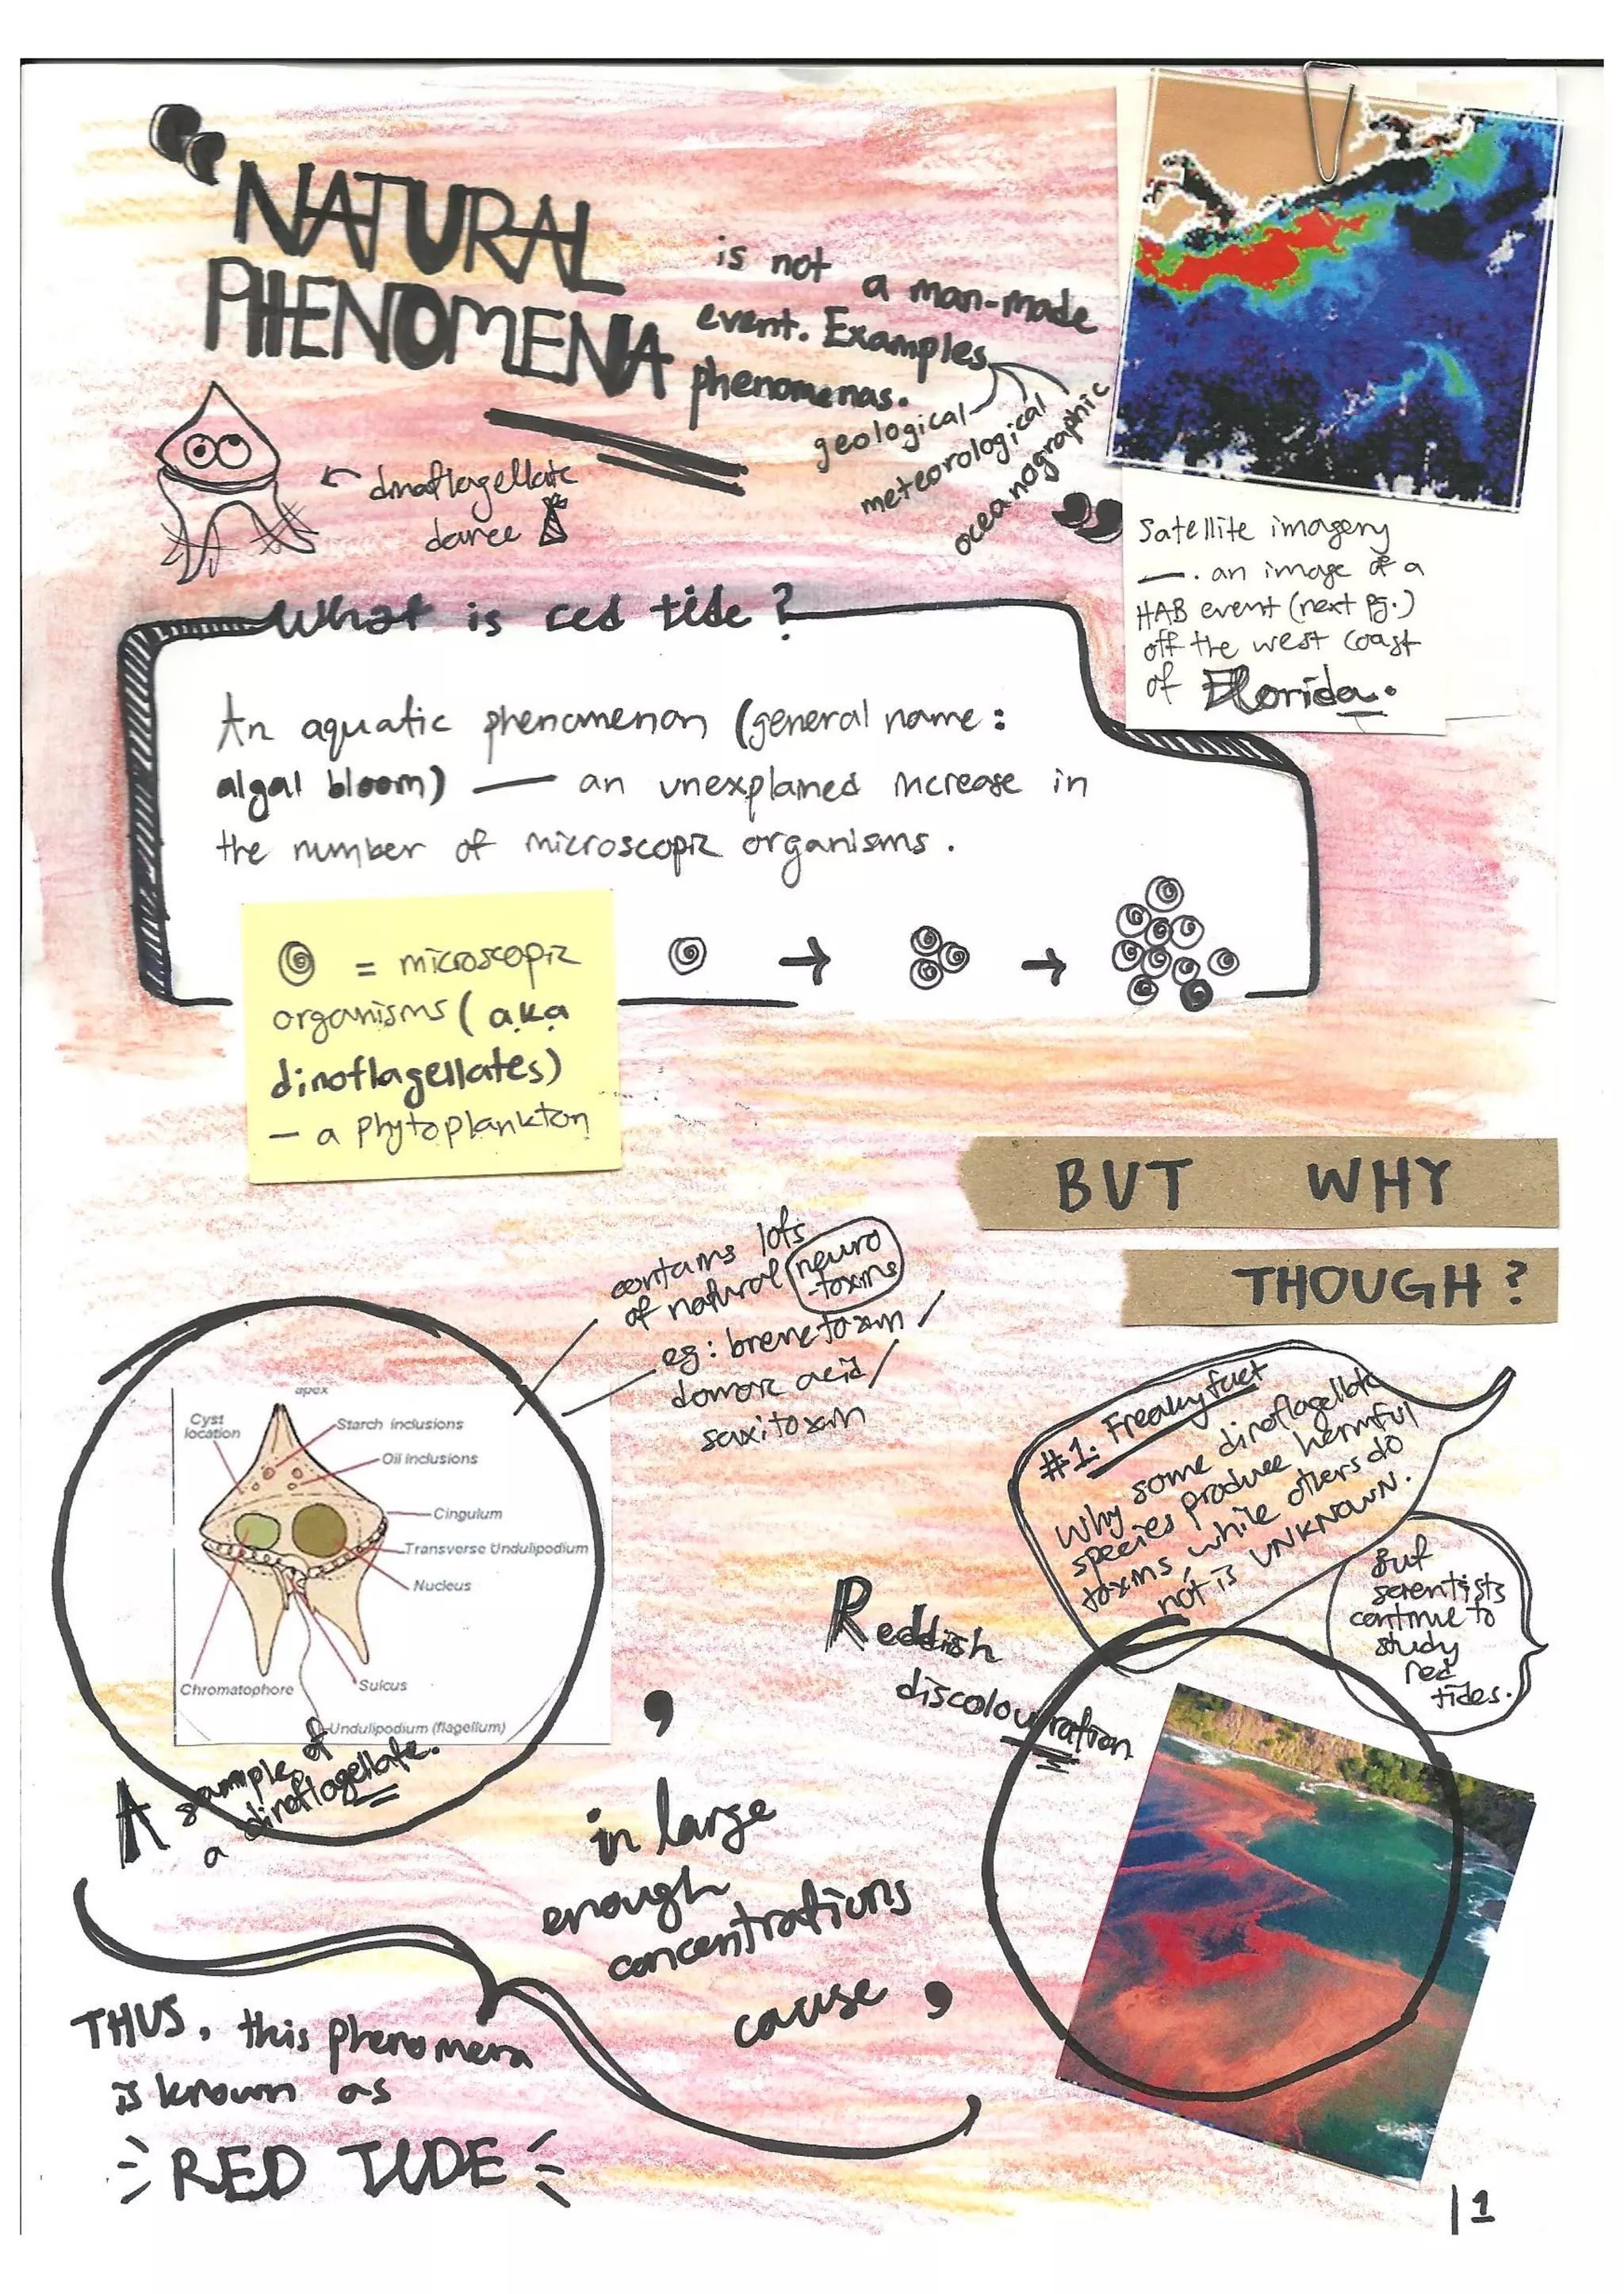 “NATURAL
PHENOMENA
is not a man-made
event. Examples
phenomenas.
geological
meteorological
oceanographic”
← dinoflagellate
dance
Satellite imagery
— . an image of a
HAB event (next pg.)
off the west coast
of Florida.
What is red tide?
An aquatic phenomenon (general name:
algal bloom) — an unexplained increase in
the number of microscopic organisms.
= microscopic
organisms (a.k.a
dinoflagellates)
— a phytoplankton
→ →
BUT WHY
THOUGH?
contains lots
of natural neuro
-toxins
eg: brevetoxin /
domoic acid /
saxitoxin
apex
Cyst
location
Starch inclusions
Oil inclusions
Cingulum
Transverse Undulipodium
Nucleus
Sulcus
Chromatophore
Undulipodium (flagellum)
A sample of
a dinoflagellate.
#1. Freaky fact
Why some dinoflagellate
species produce harmful
toxins, while others do
not is UNKNOWN.
But
scientists
continue to
study
red
tides.
,
in large
enough
concentrations
cause,
Reddish
discolouration
THUS, this phenomena
is known as
RED TIDE
|1